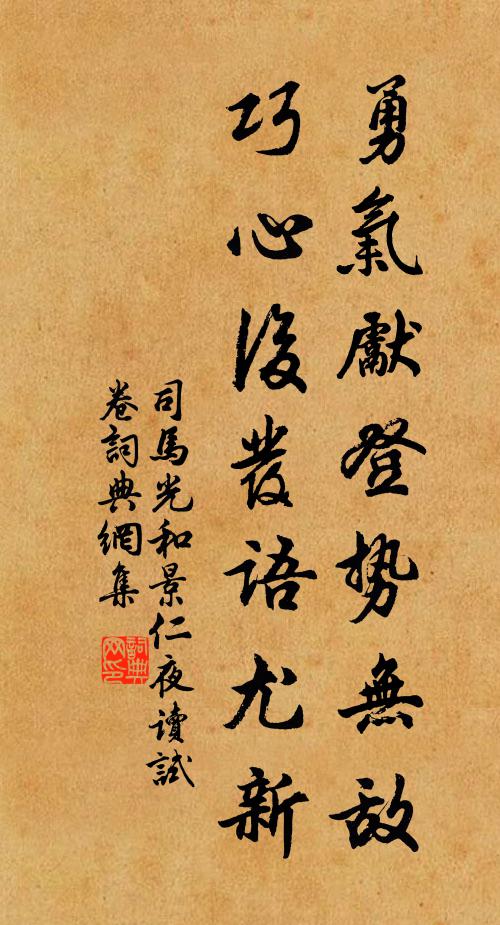 勇氣獻登勢無敵
巧心後發語尤新
司馬光和景仁夜讀試
卷詞典網集
詞典網印